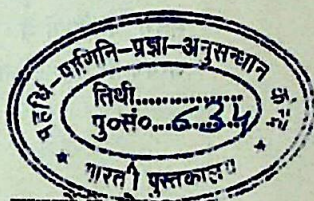 महर्षि-पाणिनि-प्रज्ञा-अनुसन्धान
तिथी..............
पु०सं०...634
* भारती पुस्तकालय *